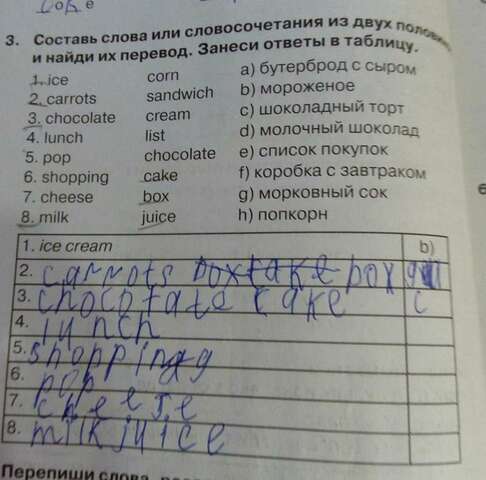 3. Составь слова или словосочетания из двух половин
и найди их перевод. Занеси ответы в таблицу.
1. ice corn a) бутерброд с сыром
2. carrots sandwich b) мороженое
3. chocolate cream c) шоколадный торт
4. lunch list d) молочный шоколад
5. pop chocolate e) список покупок
6. shopping cake f) коробка с завтраком
7. cheese box g) морковный сок
8. milk juice h) попкорн
1. ice cream b)
2. carrots box cake box g
3. chocolate cake c
4. lunch
5. shopping
6. pop
7. cheese
8. milk juice
Перепиши слова,